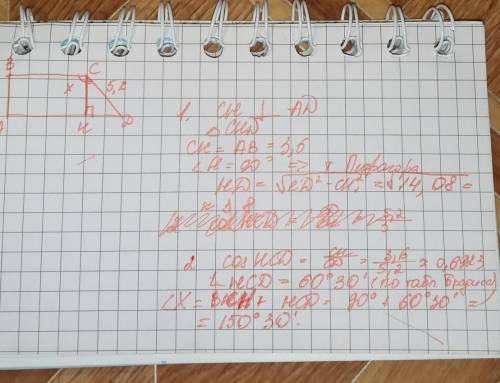 B C
x 5,2
A H D
1. CH ⊥ AD
△ CHD
CH = AB = 3,6
∠H = 90° => т. Пифагора
HD = √CD² - CH² = √14,08 =
≈ 3,8
2. cos HCD = CH/CD = 3,6/5,2 ≈ 0,6923
∠HCD = 60°30' (по табл. Брадиса)
∠X = + HCD = 90° + 60°30' =
= 150°30'.